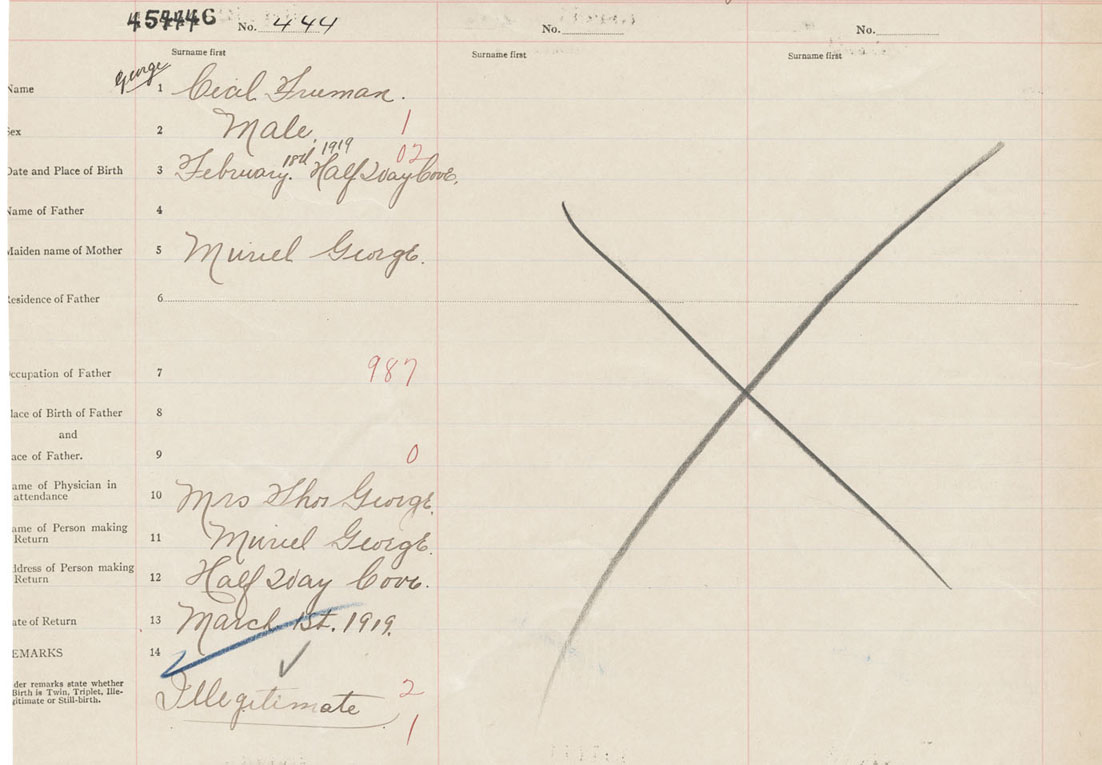 454446 No. 444 No. No.
Surname first Surname first Surname first
George
Name 1 Cecil Truman.
Sex 2 Male. 1
18th 1919 02
Date and Place of Birth 3 February. Half Way Cove.
Name of Father 4
Maiden name of Mother 5 Muriel George.
Residence of Father 6
ccupation of Father 7 987
lace of Birth of Father 8
and
ace of Father. 9 0
ame of Physician in
attendance 10 Mrs Thos George.
ame of Person making
Return 11 Muriel George.
ddress of Person making
Return 12 Half Way Cove.
ate of Return 13 March 1st. 1919.
EMARKS 14
der remarks state whether
Birth is Twin, Triplet, Ille-
gitimate or Still-birth.
Illegitimate 2
1